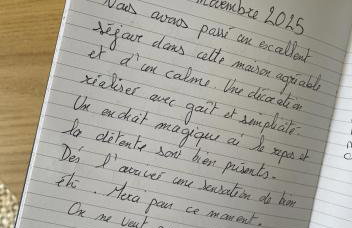 novembre 2025
Nous avons passé un excellent
séjour dans cette maison agréable
et d'un calme. Une décoration
réaliser avec goût et simplicité.
Un endroit magique où le repos et
la détente sont bien présents.
Dès l'arrivée une sensation de bien
être. Merci pour ce moment.
On ne veut